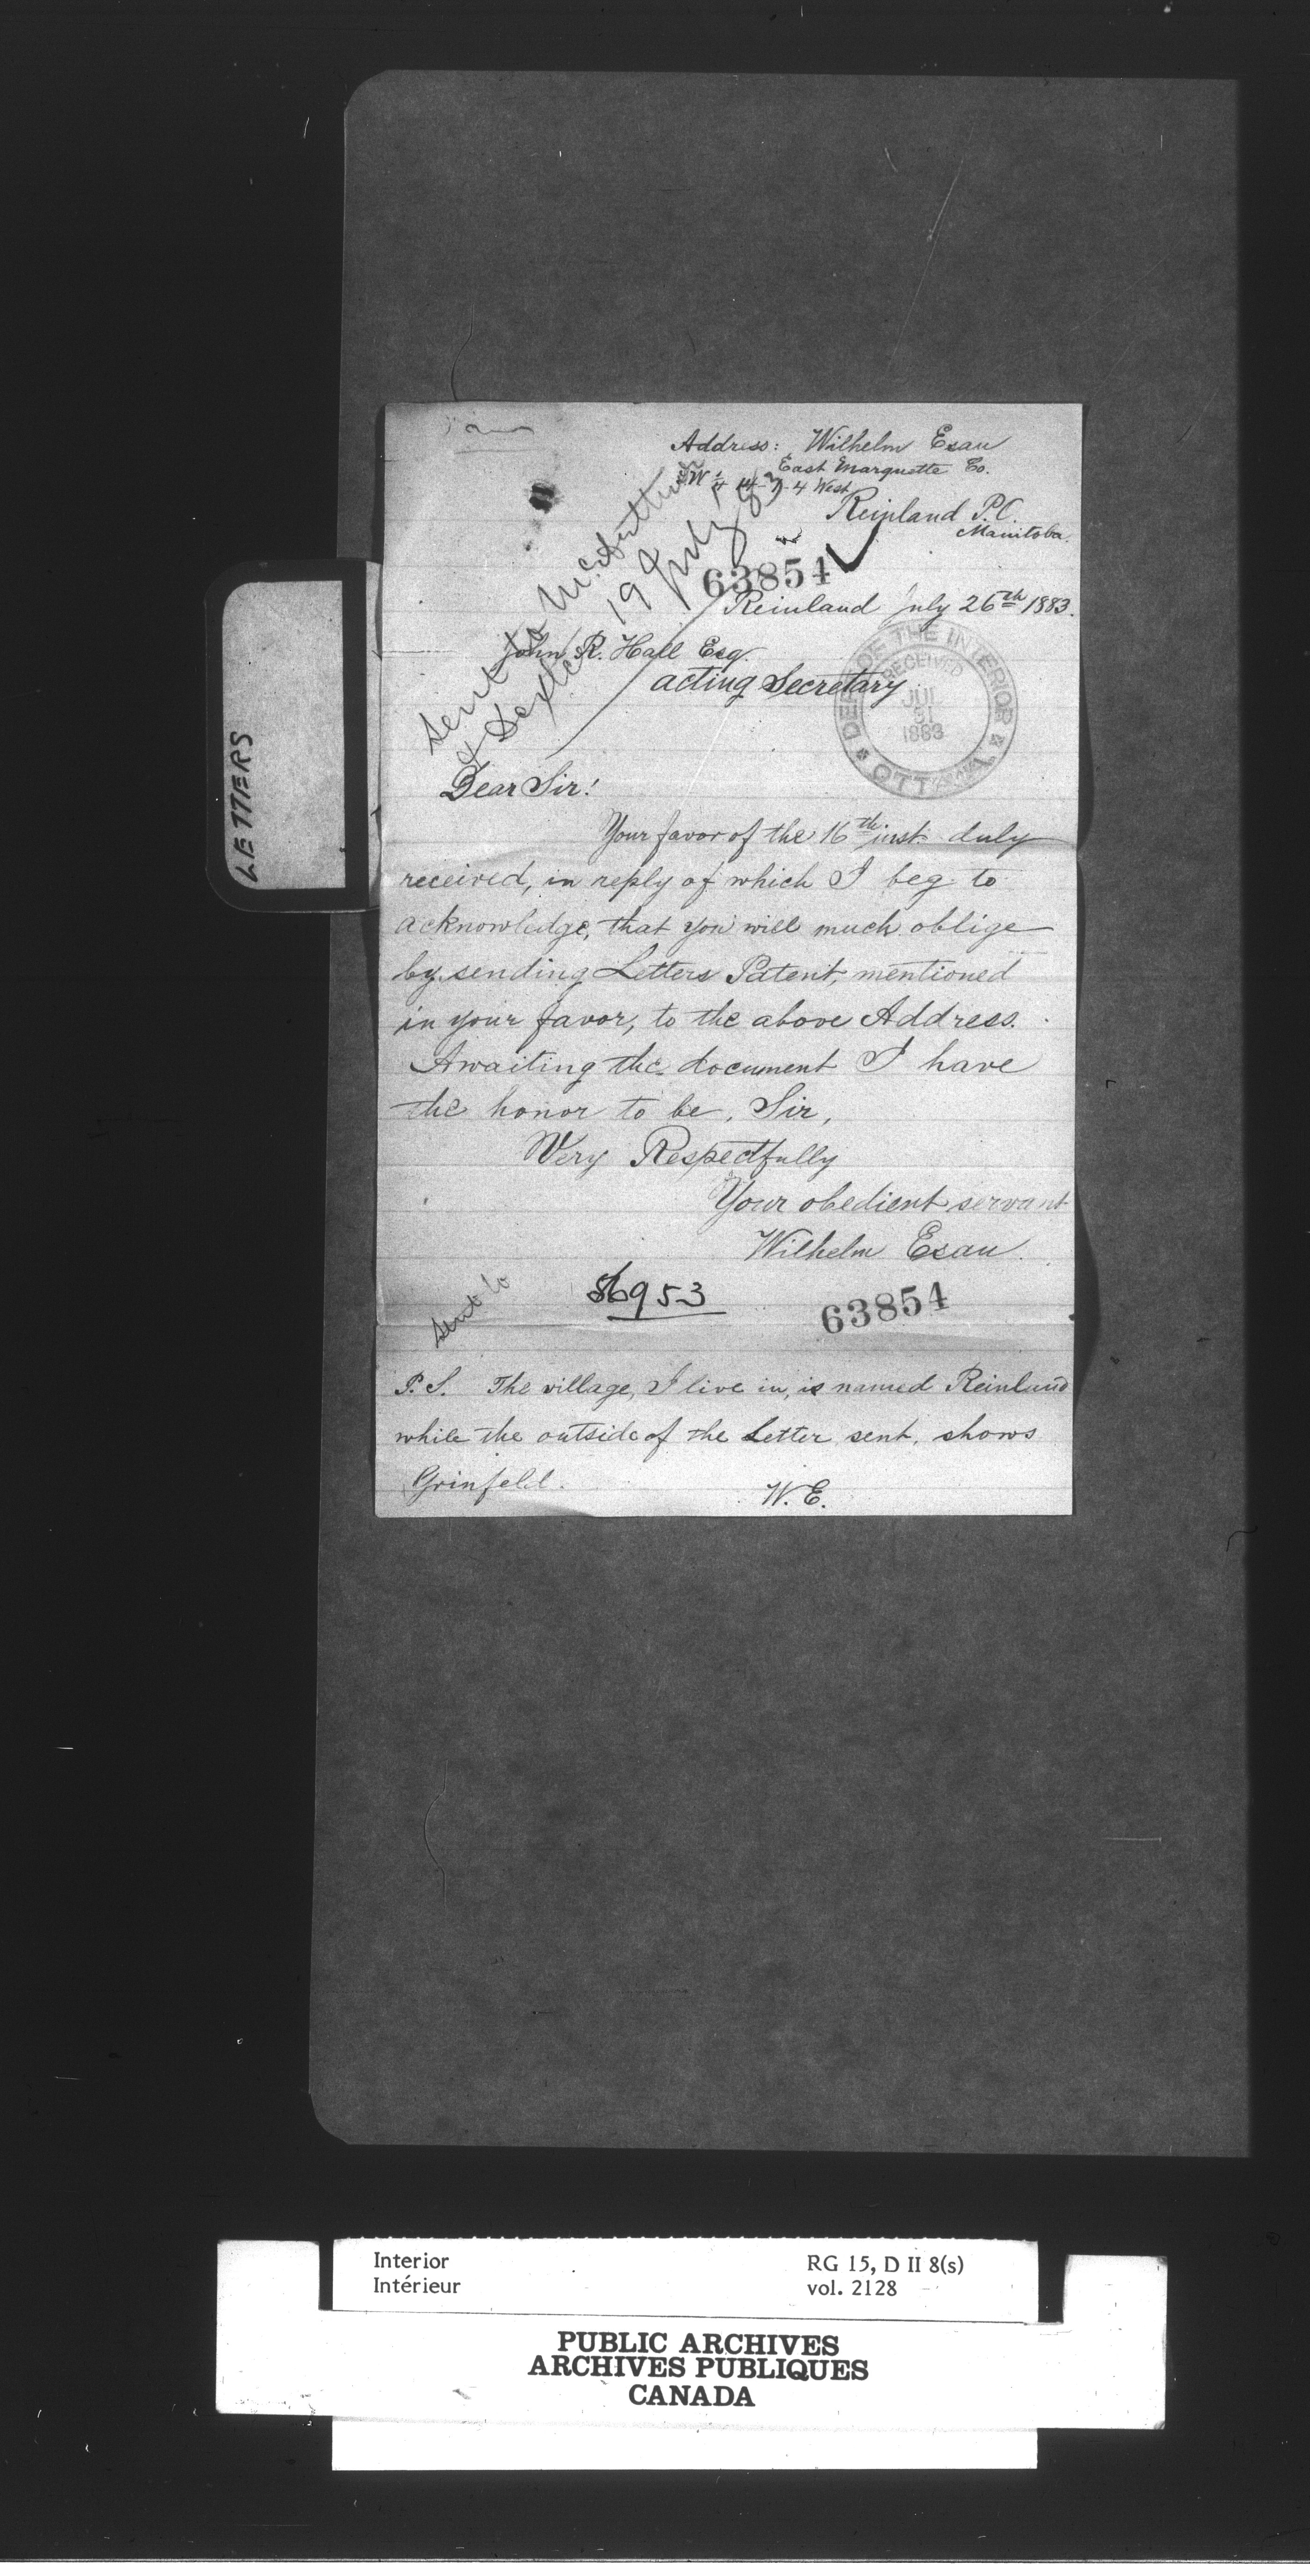 Address: Wilhelm Esau
East Marquette Co.
SW ¼ 14-1-4 West
Reinland P.O.
Manitoba.
63854
Reinland July 26th 1883.
sent to McArthur
& Dexter 19 July 83
John R. Hall Esq.
acting Secretary
DEPT OF THE INTERIOR
RECEIVED
JUL
31
1883
OTTAWA
Dear Sir!
Your favor of the 16th inst. duly
received, in reply of which I beg to
acknowledge, that you will much oblige
by sending Letters Patent, mentioned
in your favor, to the above Address.
Awaiting the document I have
the honor to be, Sir,
Very Respectfully
Your obedient servant
Wilhelm Esau.
sent to
56953
63854
P.S. The village, I live in, is named Reinland
while the outside of the Letter sent, shows
Grinfeld.
W. E.
LETTERS
Interior
Intérieur
RG 15, D II 8(s)
vol. 2128
PUBLIC ARCHIVES
ARCHIVES PUBLIQUES
CANADA